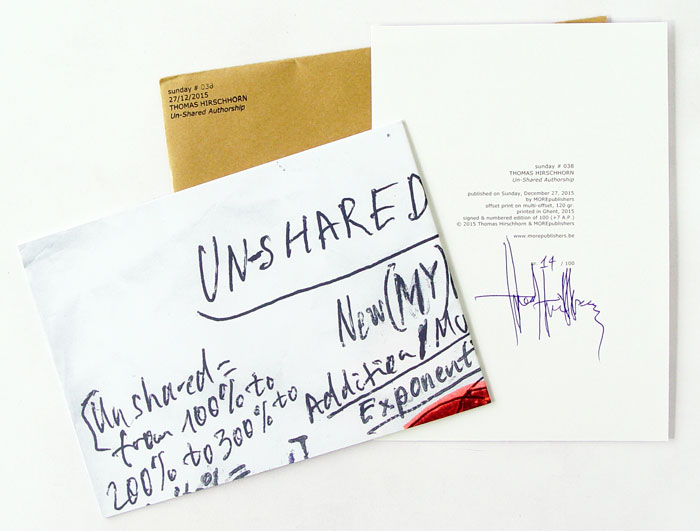 sunday # 038
27/12/2015
THOMAS HIRSCHHORN
Un-Shared Authorship
sunday # 038
THOMAS HIRSCHHORN
Un-Shared Authorship
published on Sunday, December 27, 2015
by MOREpublishers
offset print on multi-offset, 120 gr.
printed in Ghent, 2015
signed & numbered edition of 100 (+7 A.P.)
© 2015 Thomas Hirschhorn & MOREpublishers
www.morepublishers.be
14 / 100
UN-SHARED
New (MY)
Addition/Mu
Exponent
Unshared=
from 100% to
200% to 300% to